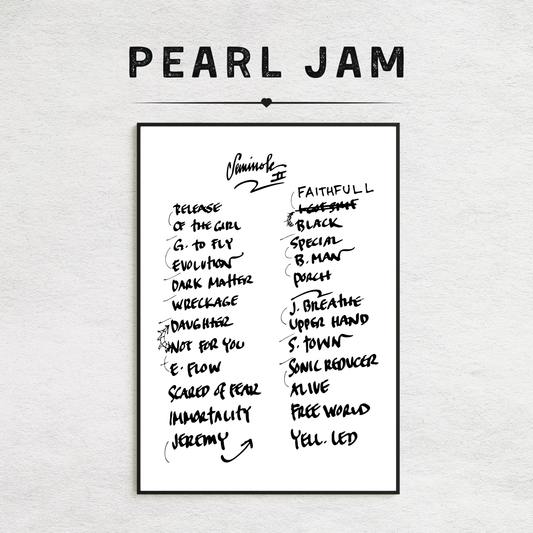 PEARL JAM
Seminole
II
RELEASE
OF THE GIRL
G. TO FLY
EVOLUTION
DARK MATTER
WRECKAGE
DAUGHTER
NOT FOR YOU
E. FLOW
SCARED OF FEAR
IMMORTALITY
JEREMY
FAITHFULL
I GOT SHIT
BLACK
SPECIAL
B. MAN
PORCH
J. BREATHE
UPPER HAND
S. TOWN
SONIC REDUCER
ALIVE
FREE WORLD
YELL. LED